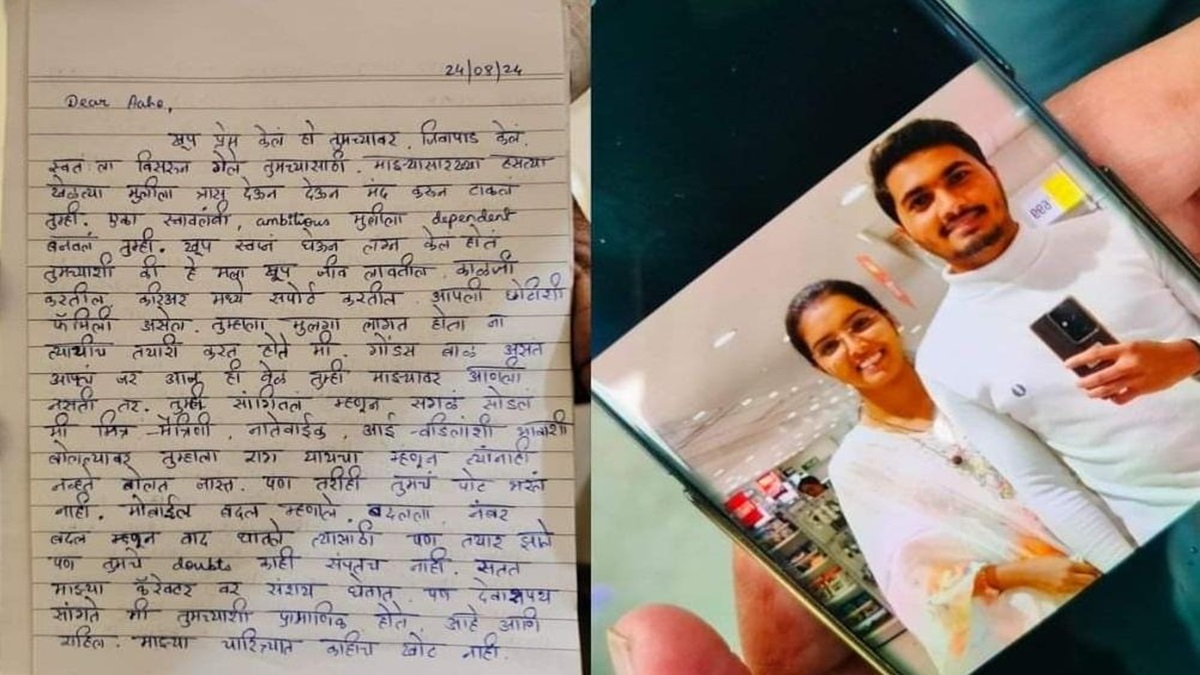 24/08/24
Dear Aaho,
खूप प्रेम केलं हो तुमच्यावर. जिवापाड केलं.
स्वतःला विसरून गेले तुमच्यासाठी. माझ्यासारख्या हसत्या
खेळत्या मुलीला त्रास देऊन देऊन मंद करून टाकलं
तुम्ही. एका स्वावलंबी, ambitious मुलीला dependent
बनवलं तुम्ही. खूप स्वप्नं घेऊन लग्न केलं होतं
तुमच्याशी की हे मला खूप जीव लावतील. काळजी
करतील, करिअर मध्ये सपोर्ट करतील. आपली छोटीशी
फॅमिली असेल. तुम्हाला मुलगा लागत होता ना
त्याचीच तयारी करत होते मी. गोंडस बाळं असतं
आपलं जर आज ही वेळ तुम्ही माझ्यावर आणली
नसती तर. तुम्ही सांगितलं म्हणून सगळं सोडलं
मी मित्र-मैत्रिणी, नातेवाईक, आई-वडिलांशी भावाशी
बोलल्यावर तुम्हाला राग यायचा म्हणून त्यांनाही
नव्हते बोलत जास्त. पण तरीही तुमचं पोट भरलं
नाही. मोबाईल बदल म्हणाले. बदलला, नंबर
बदल म्हणून वाद घातले त्यासाठी पण तयार झाले
पण तुमचे doubts काही संपतच नाही. सतत
माझ्या कॅरेक्टर वर संशय घेतात. पण देवाशपथ
सांगते मी तुमच्याशी प्रामाणिक होते, आहे आणि
राहिल. माझ्या चारित्र्यात काहीच खोट नाही.